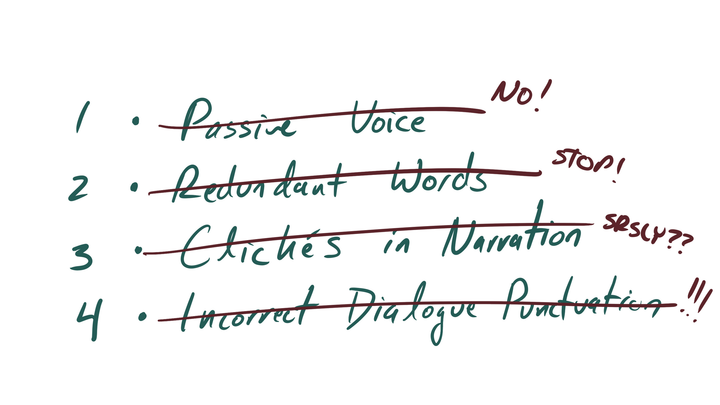 1 • Passive Voice NO!
2 • Redundant Words STOP!
3 • Clichés in Narration SRSLY??
4 • Incorrect Dialogue Punctuation !!!